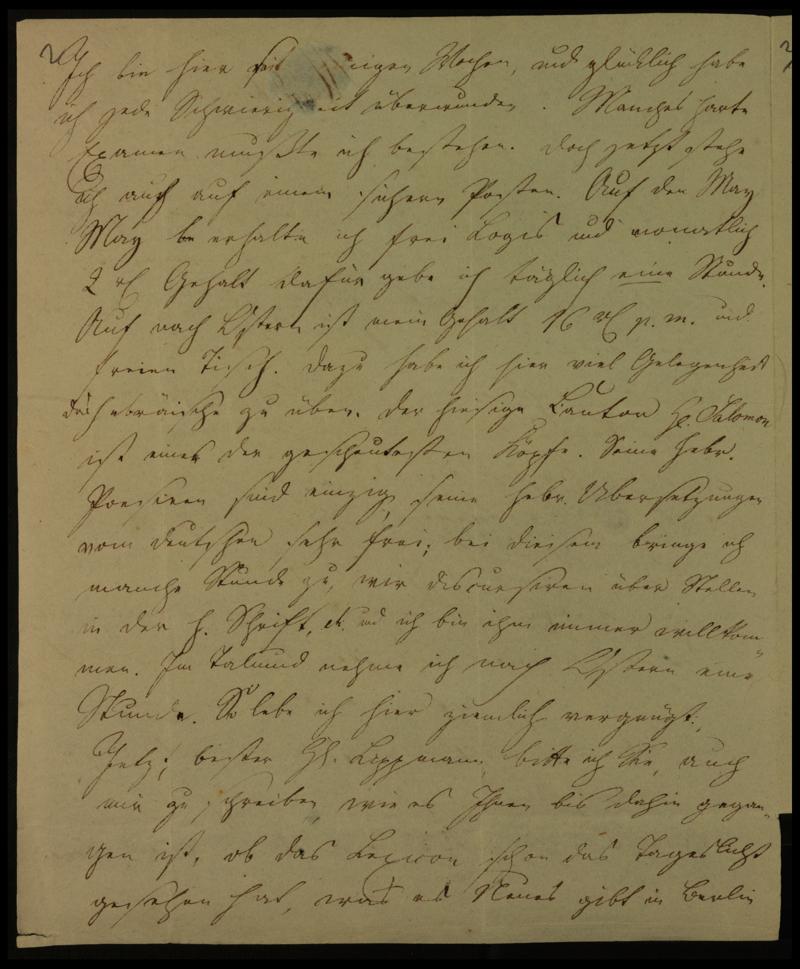 Ich bin hier seit nigen Wochen, und glücklich habe
ich jede Schwierig eit überwunden. Manches harte
Examen mußte ich bestehen. Doch jetzt stehe
ich auch auf einem sichern Posten. Auf den May
May erhalte ich frei Logis und monatlich
2 rℓ Gehalt dafür gebe ich täglich eine Stunde.
Auf nach Ostern ist mein Gehalt 16 rℓ p. m. und
freien Tisch. Dazu habe ich hier viel Gelegenheit
hebräische zu üben. Der hiesige Cantor H. Salomon
ist einer der gescheutesten Köpfe. Seine hebr.
Poesieen sind einzig, seine hebr. Übersetzungen
vom deutschen sehr frei; bei diesem bringe ich
manche Stunde zu, wir discuriren über Stellen
in der h. Schrift, etc. und ich bin ihm immer willkom-
men. Im Talmud nehme ich nach Ostern eine
Stunde. So lebe ich hier ziemlich vergnügt.
Jetzt, bester H. Lippmann, bitte ich Sie, auch
mir zu schreiben, wie es Ihnen bis dahin gegan-
gen ist, ob das Lexicon schon das Tageslicht
gesehen hat, was es Neues gibt in Berlin